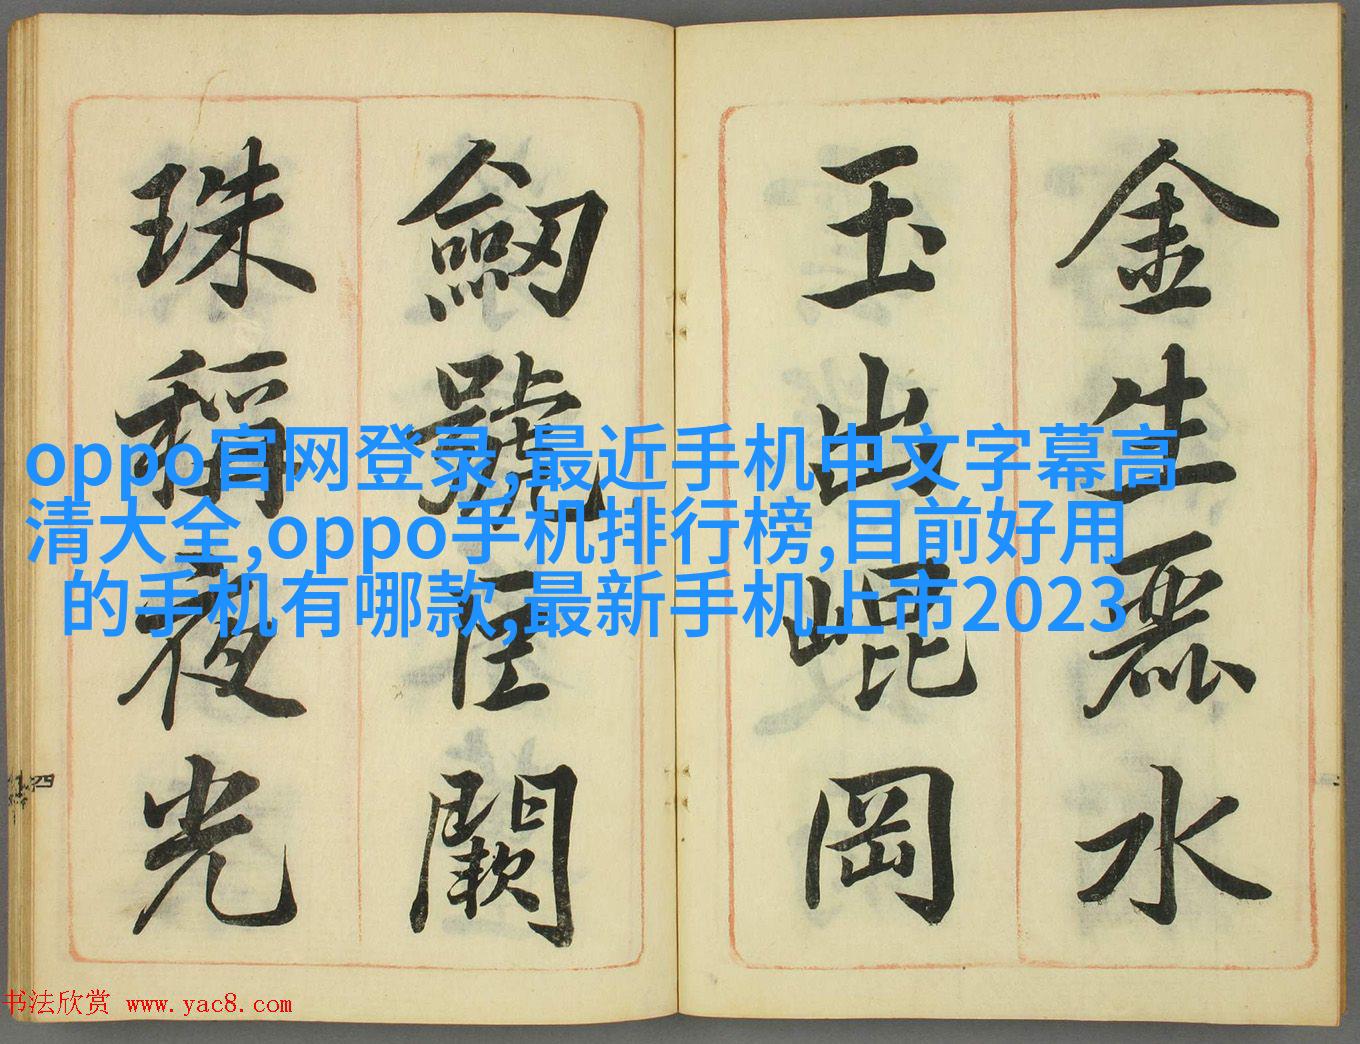 金生麗水
玉出崐岡
劒號巨闕
珠稱夜光
oppo官网登录,最近手机中文字幕高
清大全,oppo手机排行榜,目前好用
的手机有哪款,最新手机上市2023
四
书法欣赏 www.yac8.com